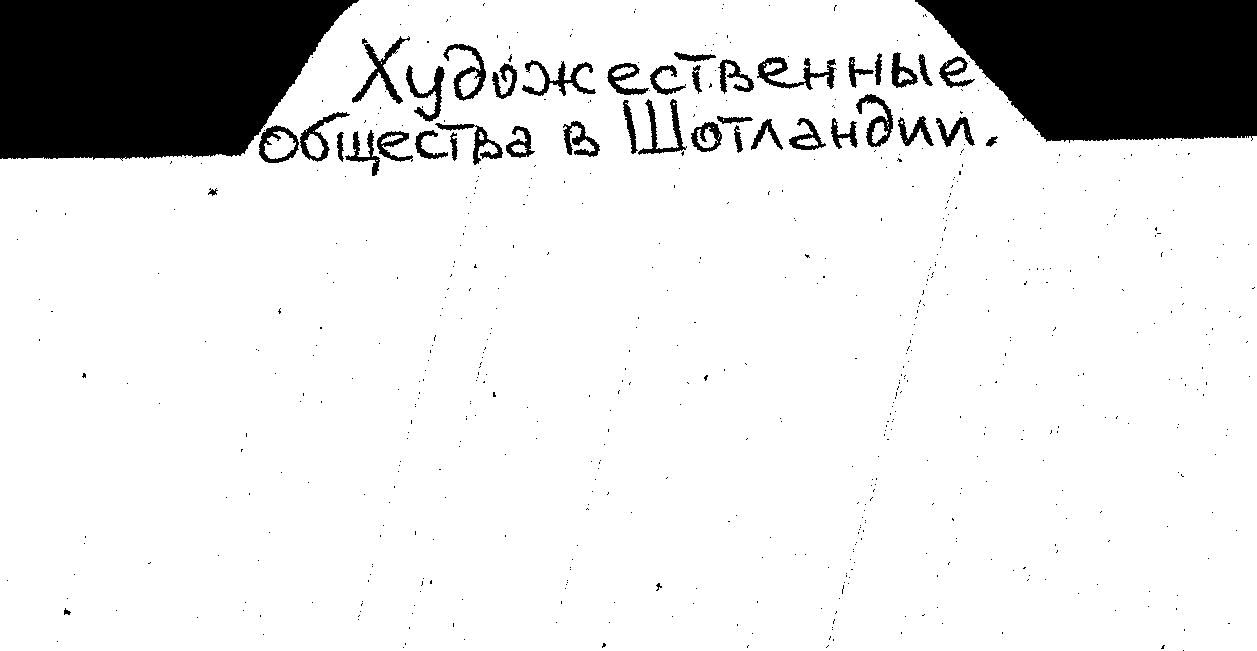 Художественные
общества в Шотландии.